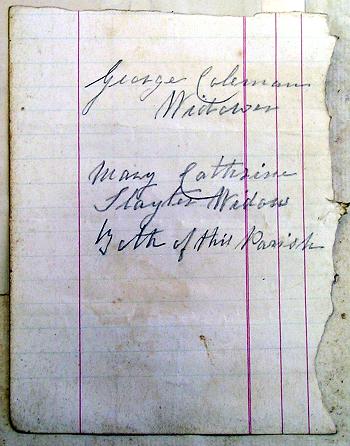 George Coleman
Widower
Mary Cathrine
Slayter Widow
Both of this Parish